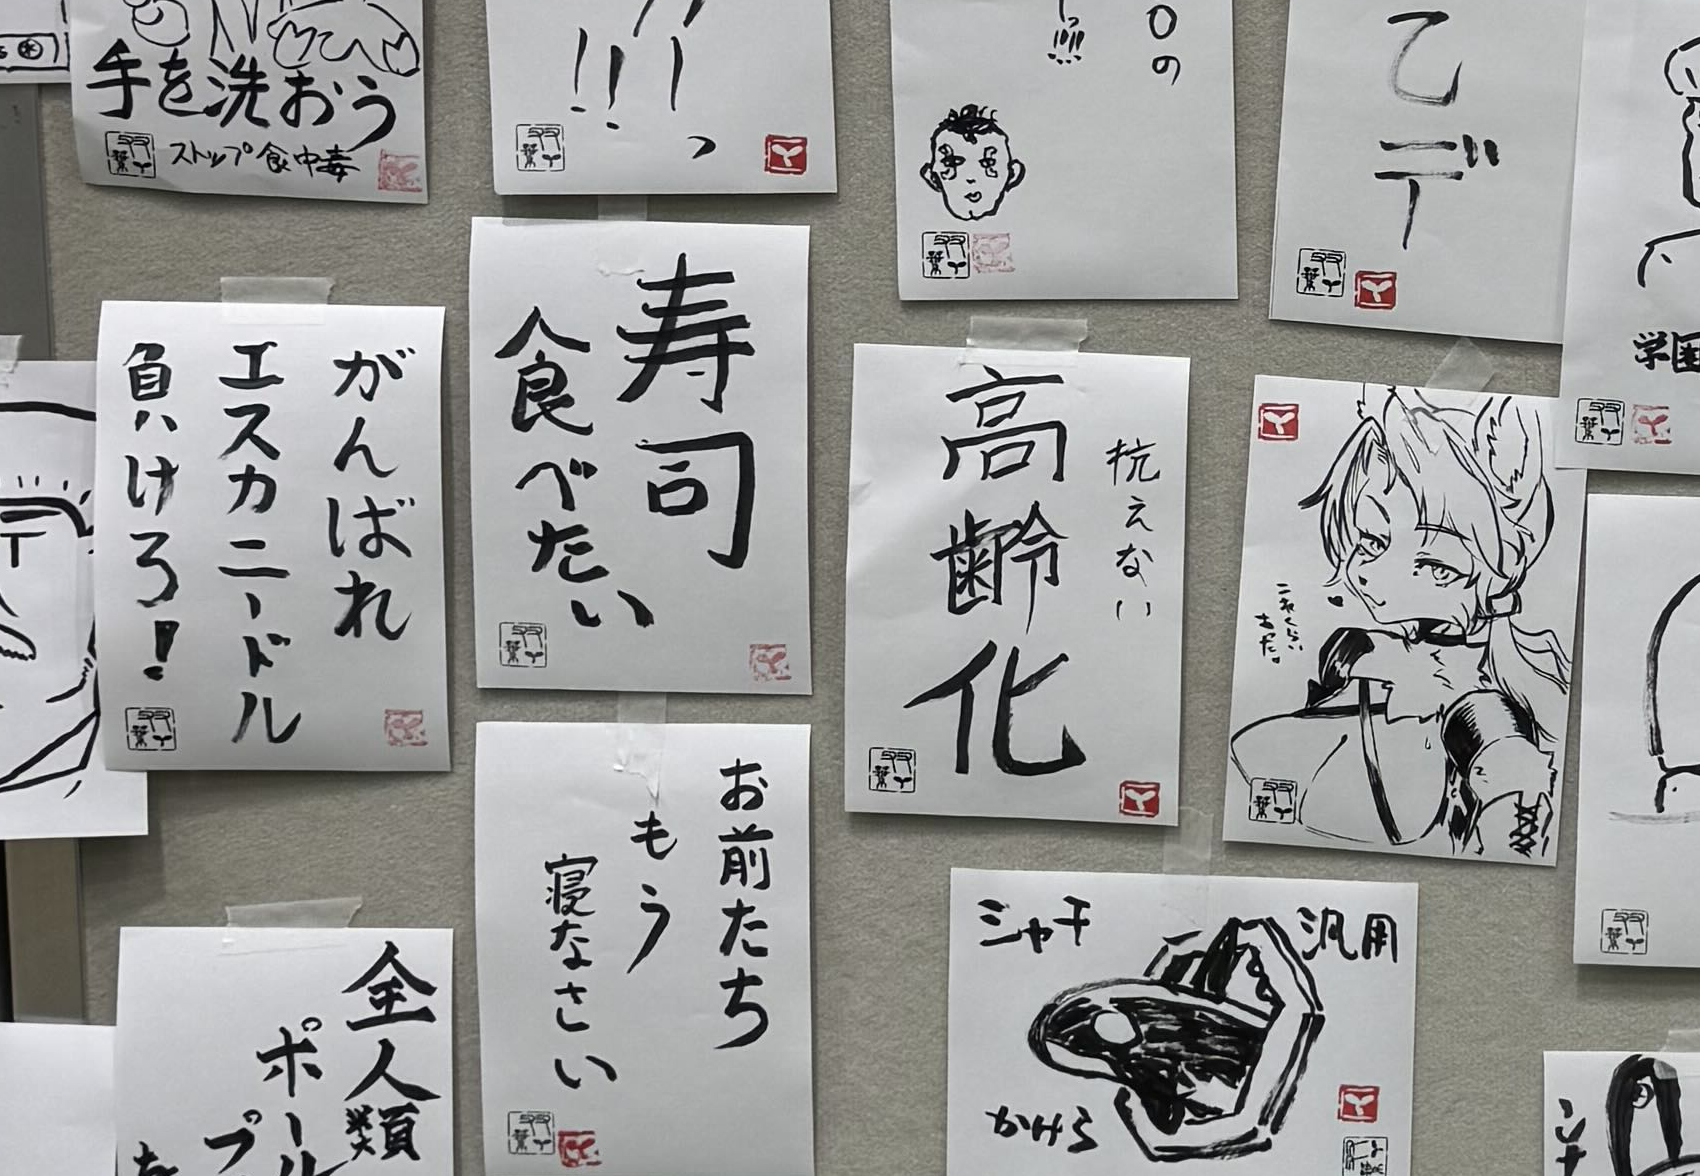 手を洗おう
ストップ食中毒
!!!
っ
の
乙
デ
学園
がんばれ
エスカニードル
負けろ!
寿司
食べたい
抗えない
高齢化
これくらい
お前たち
もう
寝なさい
シャチ
汎用
かけら
全人類
ポール
プ
を